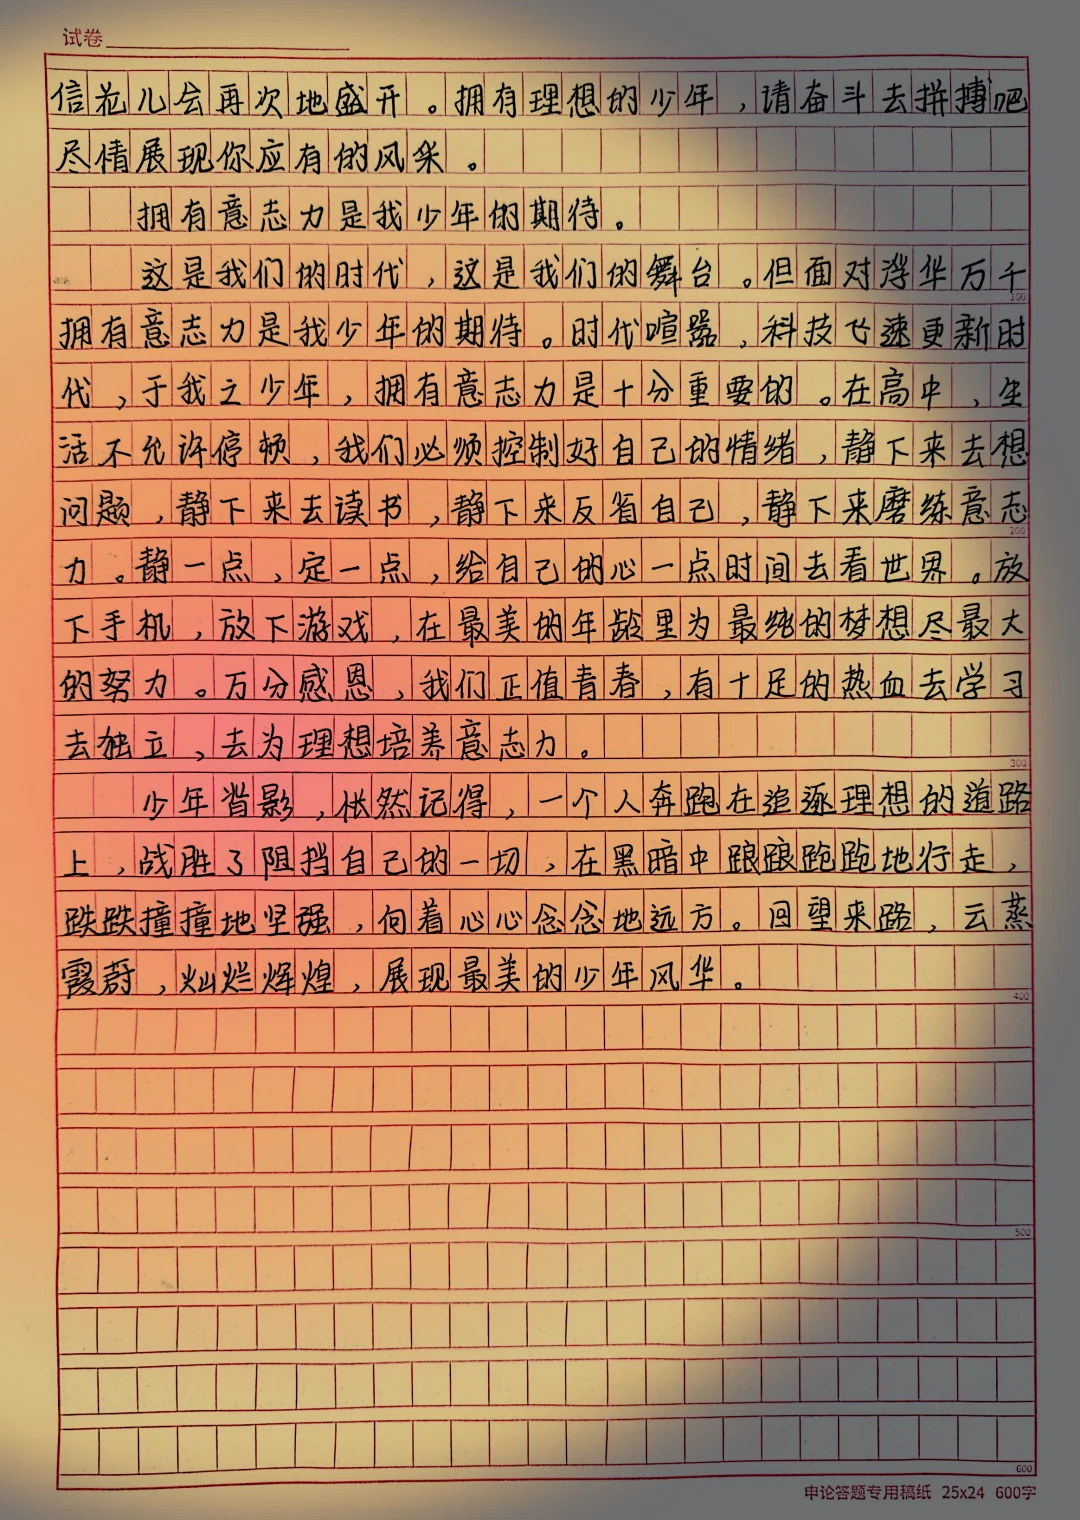 试卷
信花儿会再次地盛开。拥有理想的少年，请奋斗去拼搏吧
尽情展现你应有的风采。
拥有意志力是我少年的期待。
这是我们的时代，这是我们的舞台。但面对浮华万千
100
拥有意志力是我少年的期待。时代喧嚣，科技飞速更新时
代，于我之少年，拥有意志力是十分重要的。在高中，生
活不允许停顿，我们必须控制好自己的情绪，静下来去想
问题，静下来去读书，静下来反省自己，静下来磨练意志
200
力。静一点，定一点，给自己的心一点时间去看世界。放
下手机，放下游戏，在最美的年龄里为最纯的梦想尽最大
的努力。万分感恩，我们正值青春，有十足的热血去学习
去独立，去为理想培养意志力。
300
少年背影，依然记得，一个人奔跑在追逐理想的道路
上，战胜了阻挡自己的一切，在黑暗中踉踉跄跄地行走，
跌跌撞撞地坚强，向着心心念念地远方。回望来路，云蒸
霞蔚，灿烂辉煌，展现最美的少年风华。
400
500
600
申论答题专用稿纸 25x24 600字